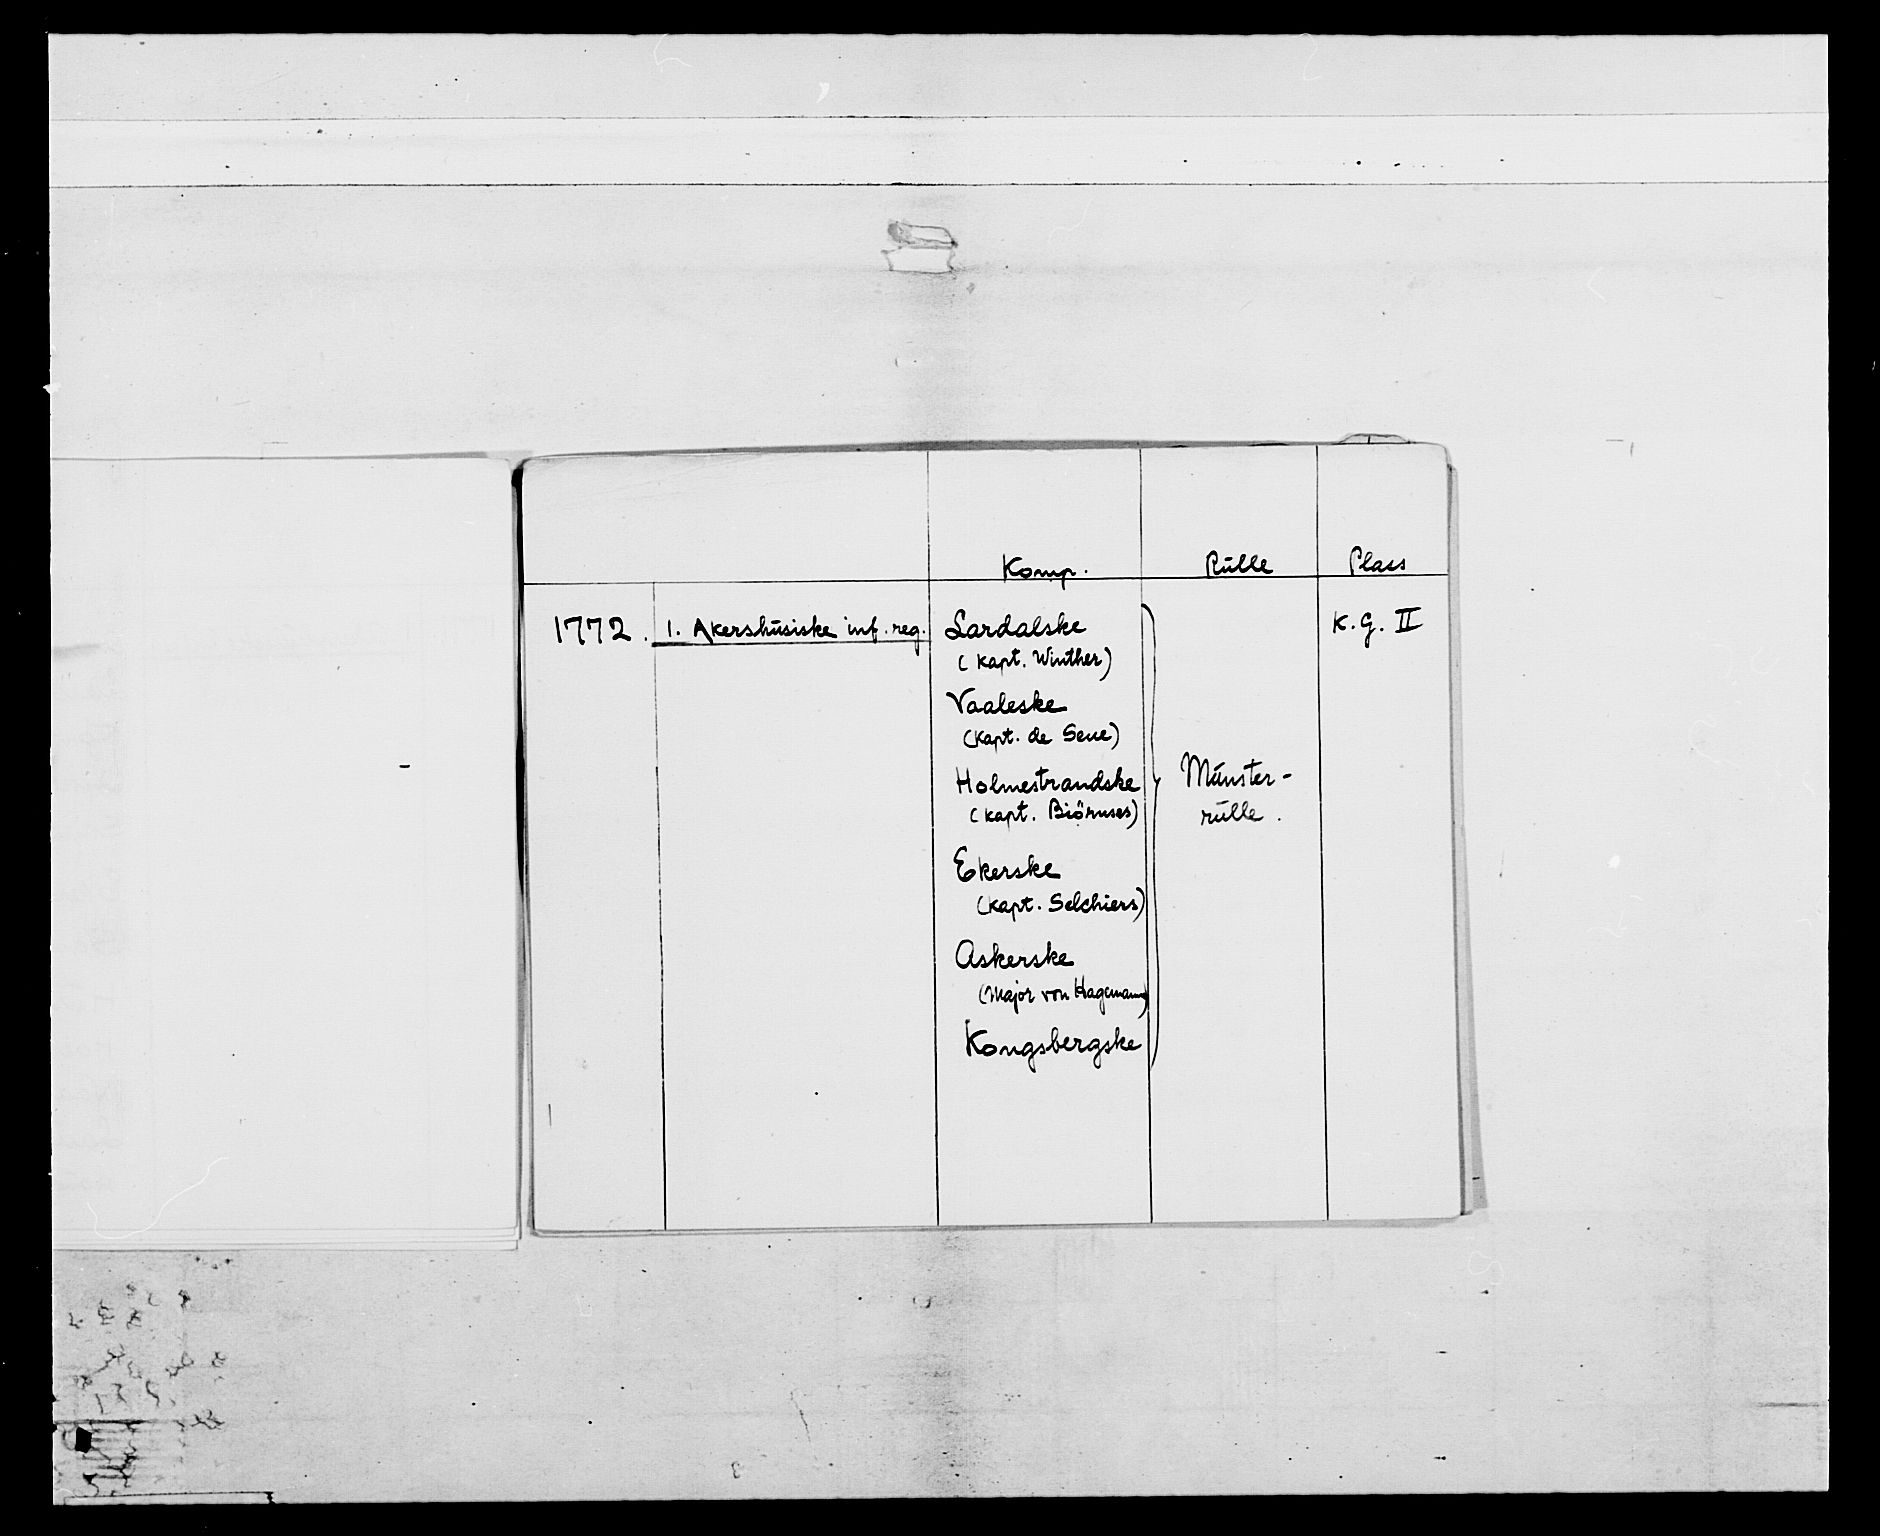 Komp. Rülle Plass
1772. 1. Akershüsiske inf. reg. Lardalske K.G. II
(Kapt. Winther)
Vaaleske
(Kapt. de Seue)
Holmestrandske Münster-
(Kapt. Biörnses) rülle.
Ekerske
(Kapt. Selchiers)
Askerske
(Major von Hagemann)
Kongsbergske